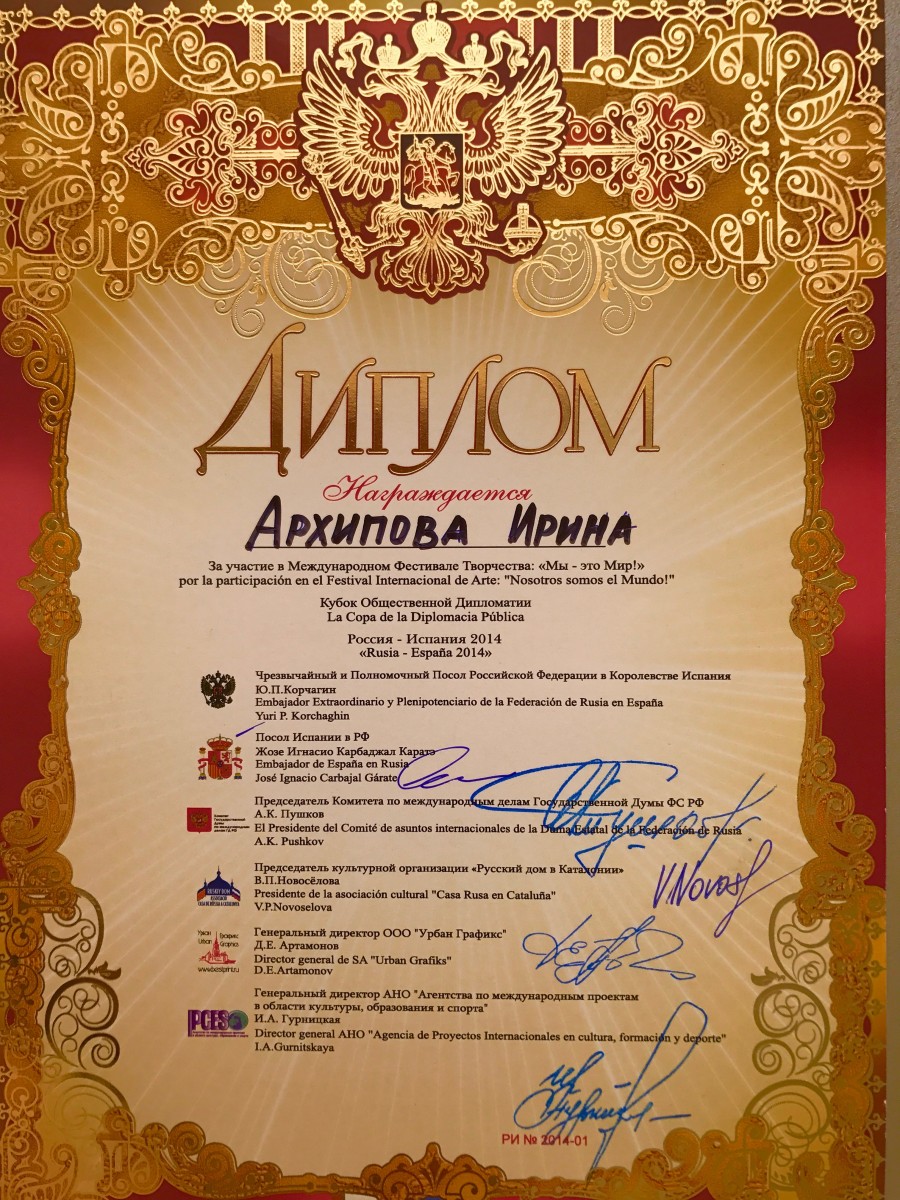 Диплом
Награждается
Архипова Ирина
За участие в Международном Фестивале Творчества: «Мы - это Мир!»
por la participación en el Festival Internacional de Arte: "Nosotros somos el Mundo!"
Кубок Общественной Дипломатии
La Copa de la Diplomacia Pública
Россия - Испания 2014
«Rusia - España 2014»
Чрезвычайный и Полномочный Посол Российской Федерации в Королевстве Испания
Ю.П.Корчагин
Embajador Extraordinario y Plenipotenciario de la Federación de Rusia en España
Yuri P. Korchaghin
Посол Испании в РФ
Жозе Игнасио Карбаджал Каратэ
Embajador de España en Rusia
José Ignacio Carbajal Gárate
Председатель Комитета по международным делам Государственной Думы ФС РФ
А.К. Пушков
El Presidente del Comité de asuntos internacionales de la Duma Estatal de la Federación de Rusia
A.K. Pushkov
Председатель культурной организации «Русский дом в Каталонии»
В.П.Новосёлова
Presidente de la asociación cultural "Casa Rusa en Cataluña"
V.P.Novoselova
V.Novos
Генеральный директор ООО "Урбан Графикс"
Д.Е. Артамонов
Director general de SA "Urban Grafiks"
D.E.Artamonov
Urban Graphics
Генеральный директор АНО "Агентства по международным проектам
в области культуры, образования и спорта"
PCES
И.А. Гурницкая
Director general АНО "Agencia de Proyectos Internacionales en cultura, formación y deporte"
I.A.Gurnitskaya
РИ № 2014-01